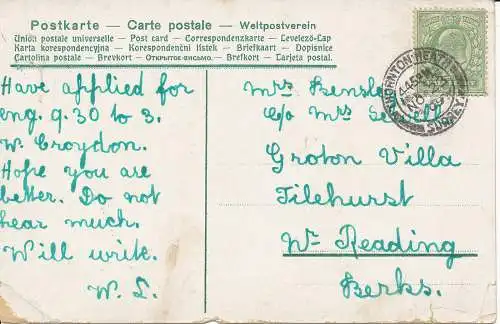 Postkarte — Carte postale — Weltpostverein
Union postale universelle — Post card — Correspondenzkarte — Levelező-Lap
Karta korespondencyjna — Korespondenční lístek — Briefkaart — Dopisnice
Cartolina postale — Brevkort — Открытое письмо — Brefkort — Tarjeta postal.
Have applied for
eng. 9.30 to 3.
W. Croydon.
Hope you are
better. Do not
hear much.
Will write.
Mrs
c/o Mrs Sewell
Groton Villa
Tilehurst
Nr Reading
Berks.
THORNTON HEATH
SURREY